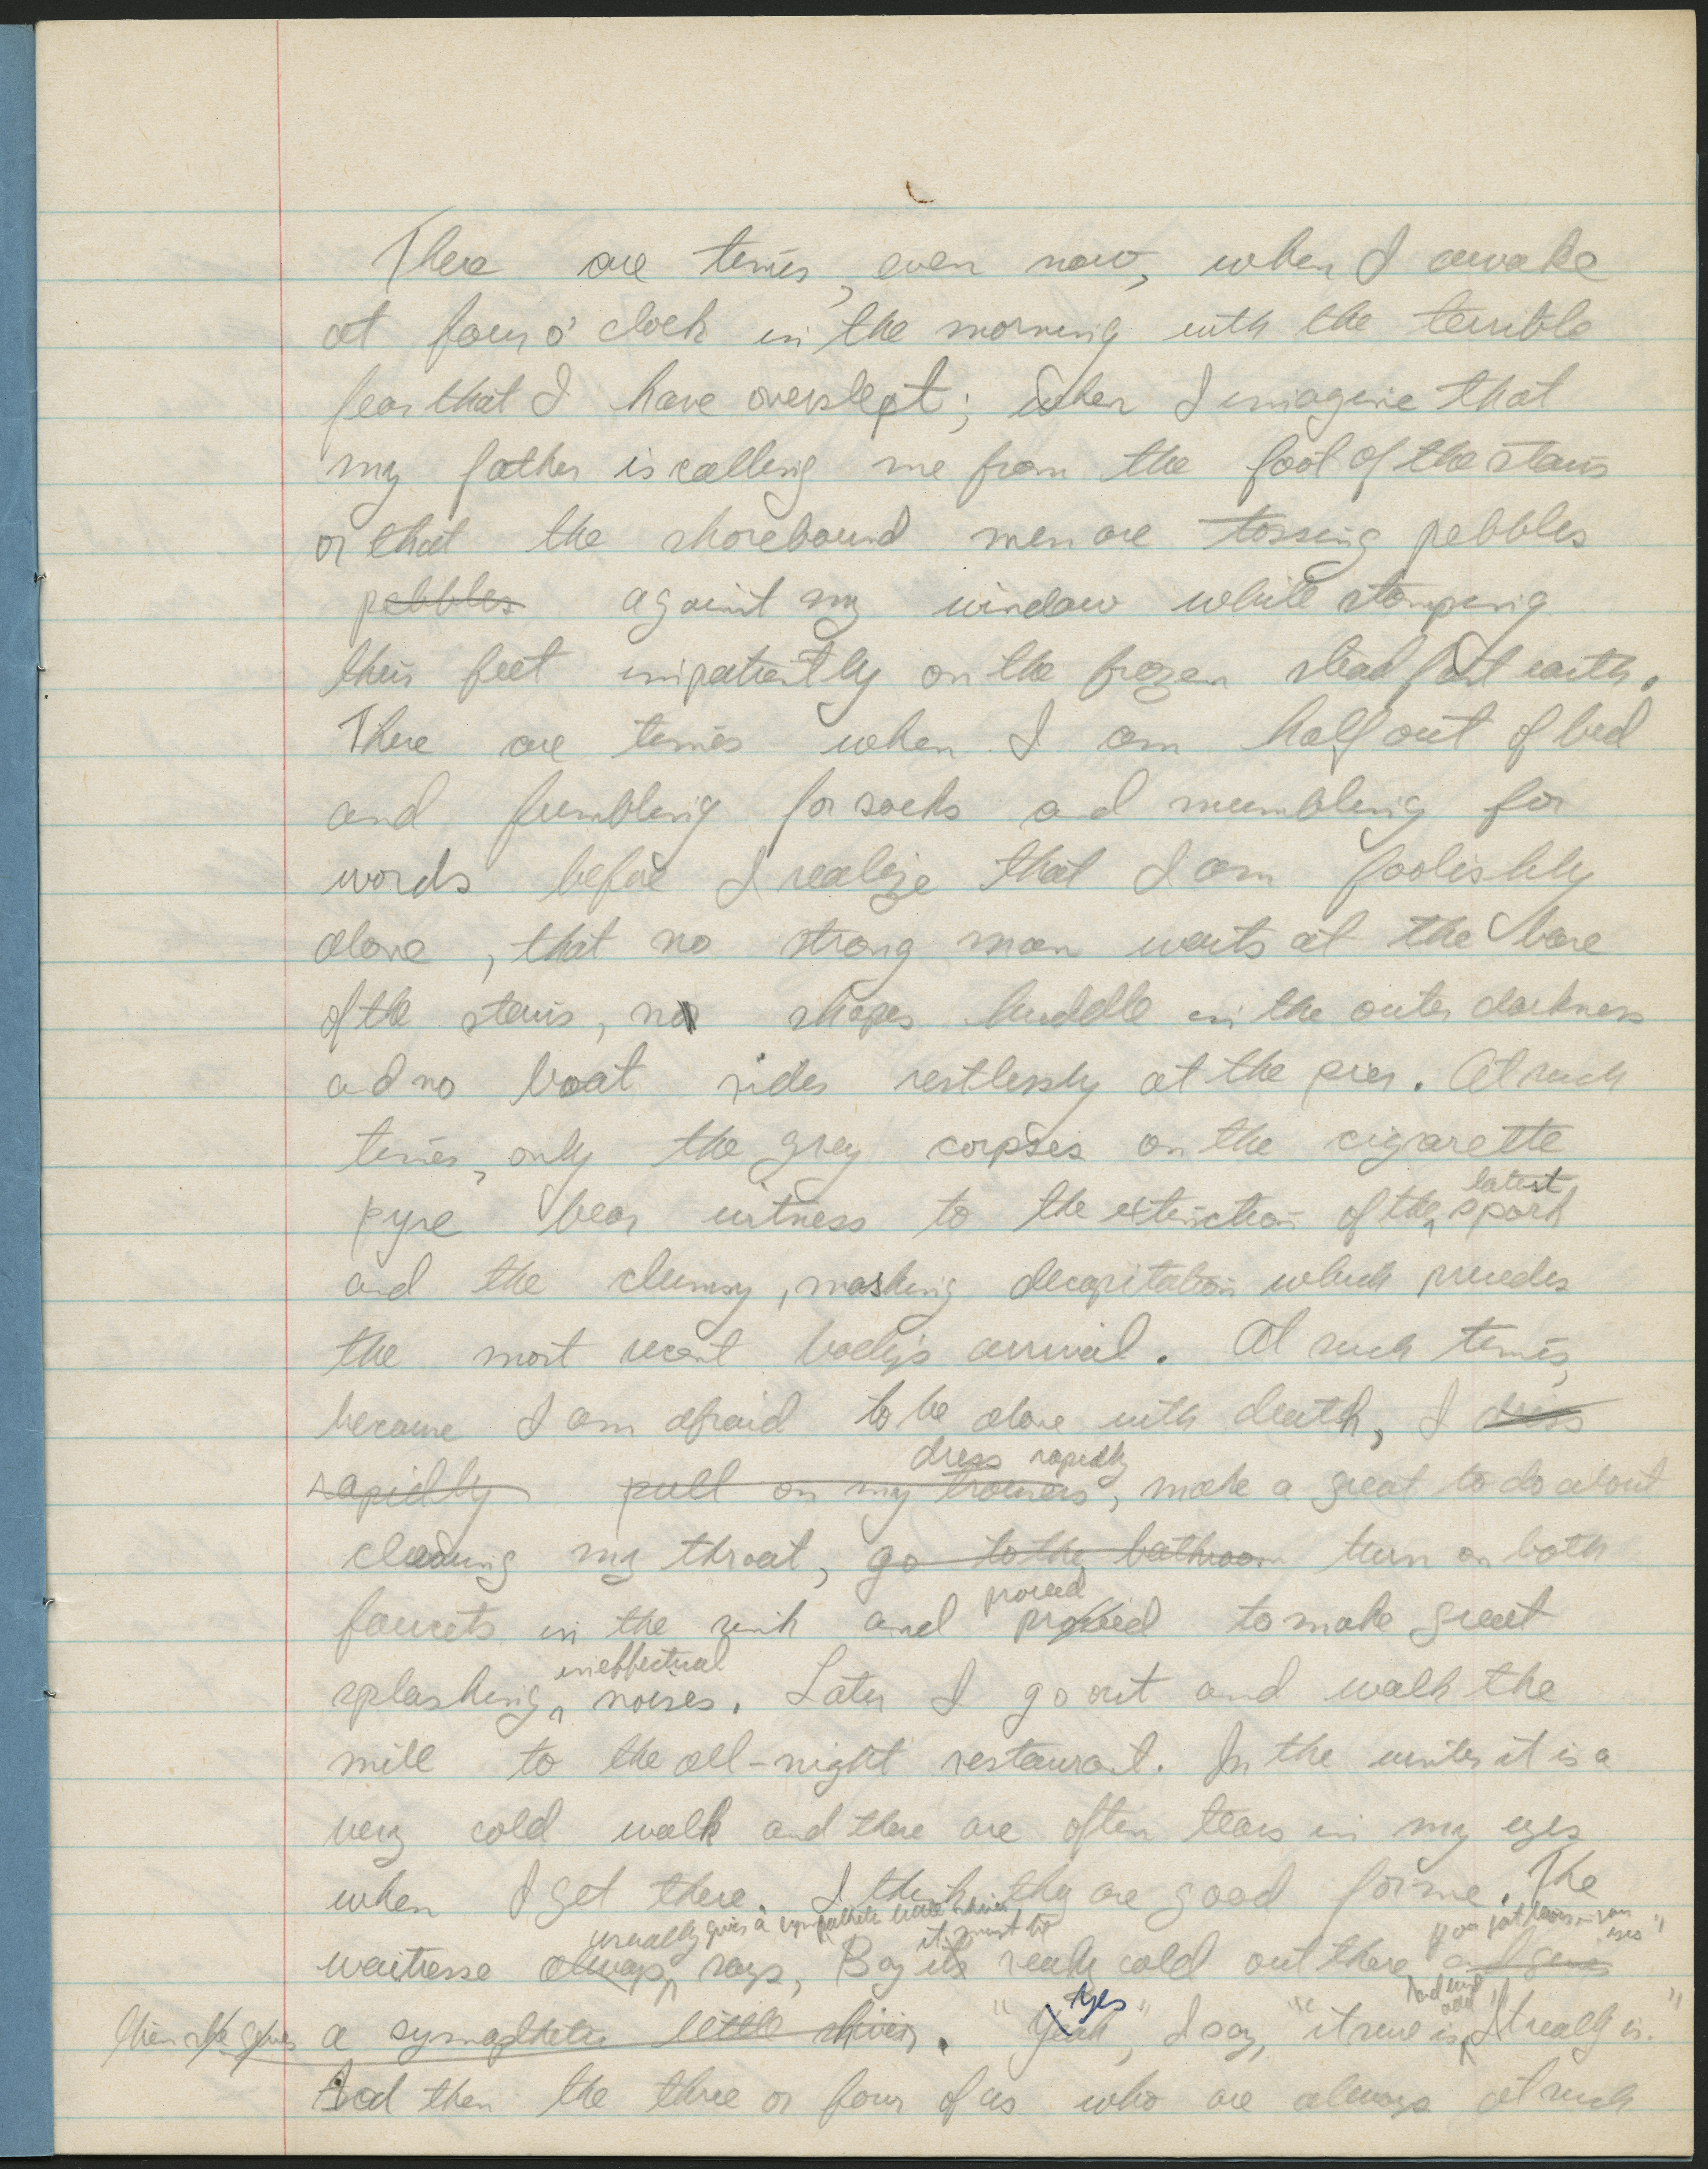 There are times, even now, when I awake
at four o'clock in the morning with the terrible
fear that I have overslept; when I imagine that
my father is calling me from the foot of the stairs
or that the shorebound men are tossing pebbles
pebbles against my window while stomping
their feet impatiently on the frozen steadfast earth.
There are times when I am half out of bed
and fumbling for socks and mumbling for
words before I realize that I am foolishly
alone, that no strong man waits at the base
of the stairs, no shapes huddle in the outer darkness
and no boat rides restlessly at the pier. At such
times, only the grey corpses on the cigarette
latest
pyre bear witness to the extinction of the spark
and the clumsy, mashing decapitation which precedes
the most recent body's arrival. At such times,
because I am afraid to be alone with death, I dress
dress rapidly
rapidly pull on my trousers, make a great to do about
clearing my throat, go to the bathroom turn on both
faucets in the sink and proceed to make great
proceed
ineffectual
splashing noises. Later I go out and walk the
mile to the all-night restaurant. In the winter it is a
very cold walk and there are often tears in my eyes
when I get there. I think they are good for me. The
usually gives a sympathetic little shiver
it must be
waitresse always says, Boy its really cold out there
eyes"
then she gives a sympathetic little shiver. "Yes", I say, "it sure is, It really is."
And then the three or four of us who are always at such